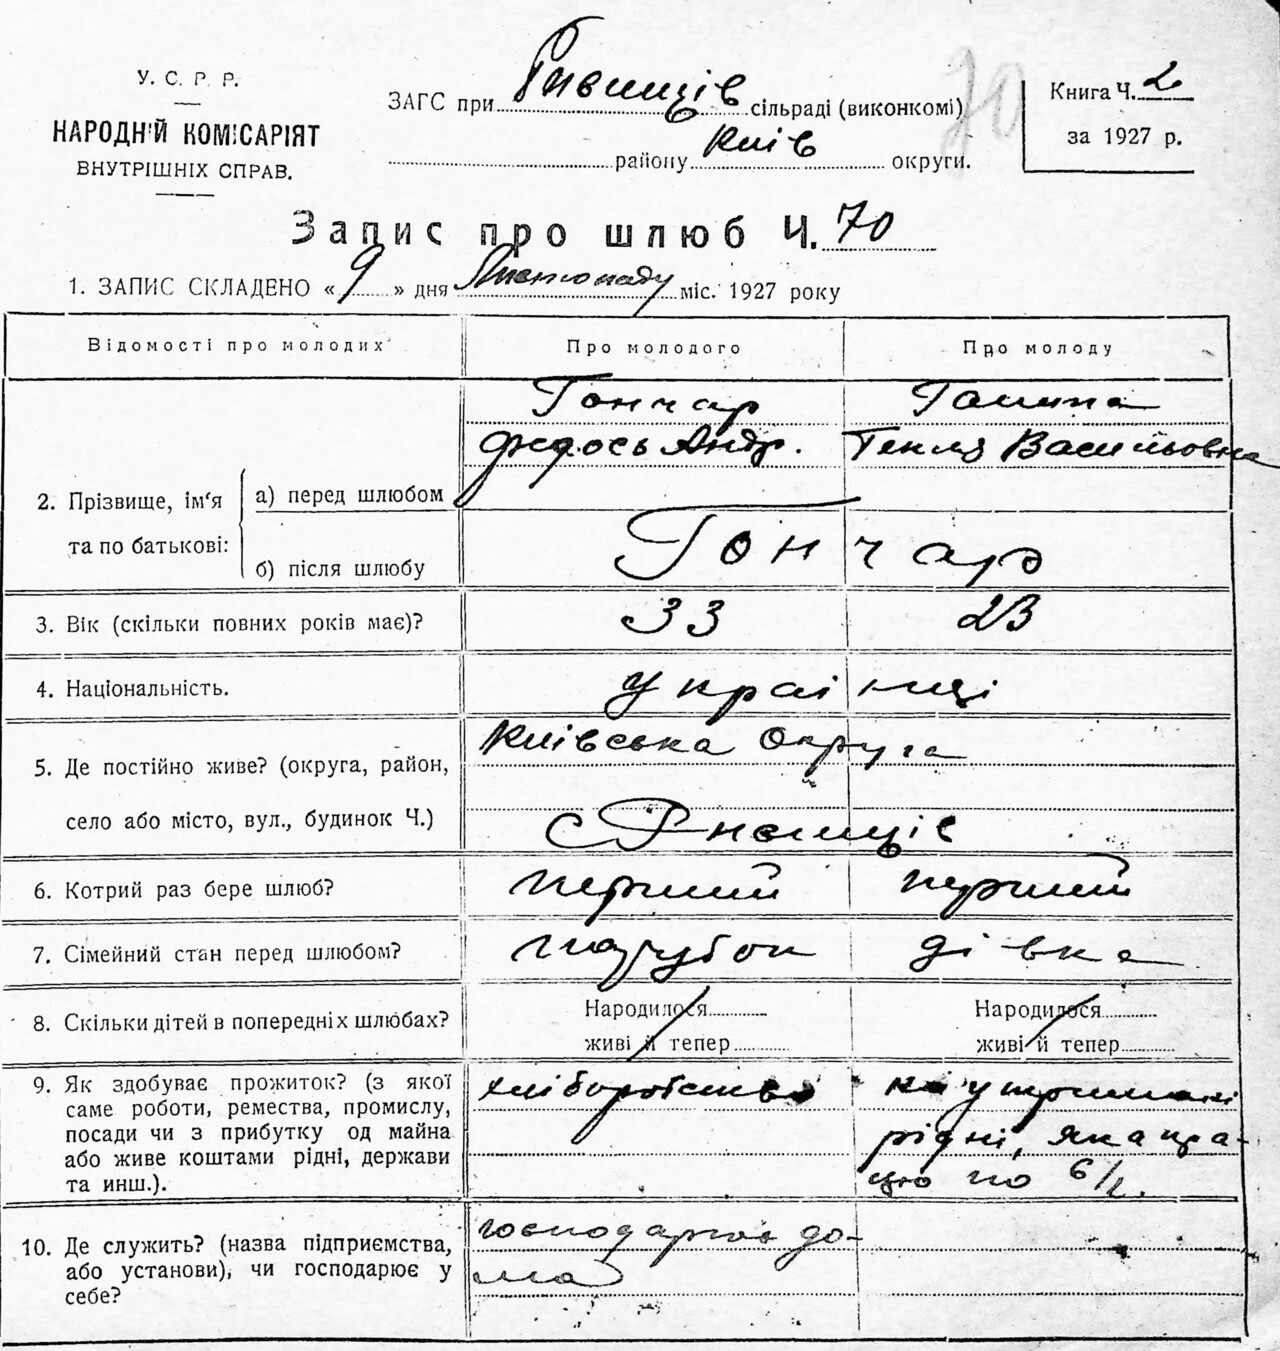 У. С. Р. Р.
НАРОДНІЙ КОМІСАРІЯТ
ВНУТРІШНІХ СПРАВ.
ЗАГС при Гнвинців сільраді (виконкомі)
району Київ округи.
70
Книга Ч. 2
за 1927 р.
Запис про шлюб Ч. 70
1. ЗАПИС СКЛАДЕНО «9» дня Листопаду міс. 1927 року
Відомості про молодих
Про молодого
Про молоду
2. Прізвище, ім'я та по батькові:
а) перед шлюбом
Гончар
Федось Андр.
Галина
Текля Васильовна
б) після шлюбу
Гончар
3. Вік (скільки повних років має)?
33
23
4. Національність.
українці
5. Де постійно живе? (округа, район,
село або місто, вул., будинок Ч.)
Київська Округа
с
6. Котрий раз бере шлюб?
перший
перший
7. Сімейний стан перед шлюбом?
парубок
дівка
8. Скільки дітей в попередніх шлюбах?
Народилося
живі й тепер
Народилося
живі й тепер
9. Як здобуває прожиток? (з якої
саме роботи, ремества, промислу,
посади чи з прибутку од майна
або живе коштами рідні, держави
та инш.).
хліборобство
на утриманні
рідні, яка пра-
цює по с/г.
10. Де служить? (назва підприємства,
або установи), чи господарює у
себе?
господарює до-
ма